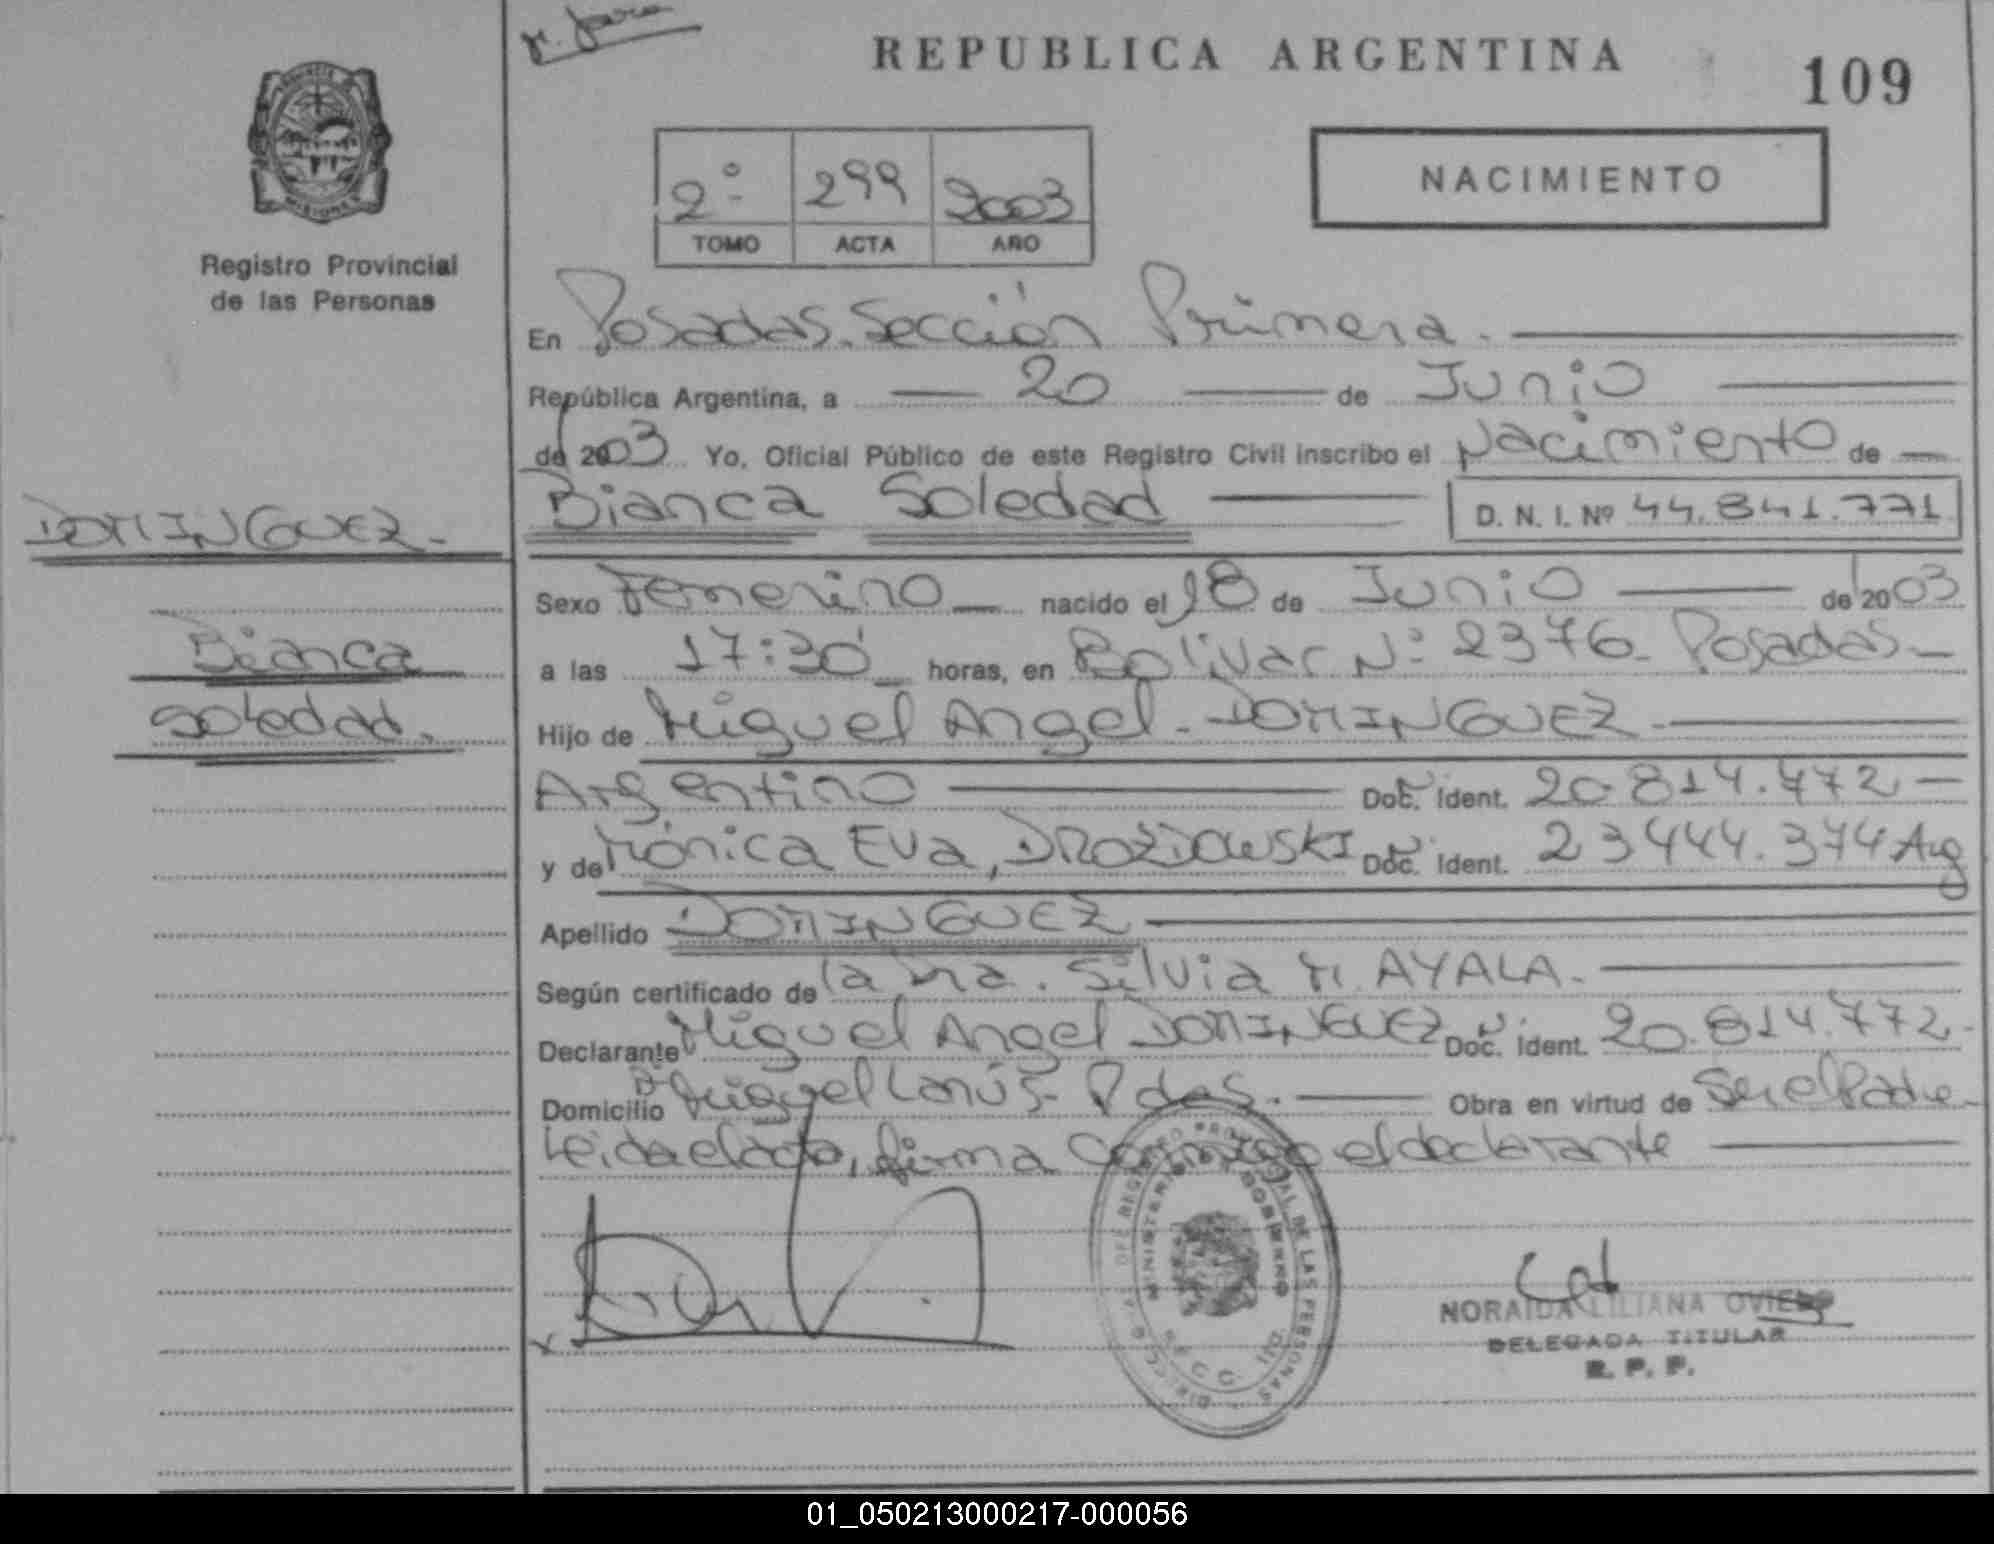 REPUBLICA ARGENTINA
109
PROVINCIA
MISIONES
Registro Provincial
de las Personas
2º 299 2003
TOMO ACTA AÑO
NACIMIENTO
En Posadas. Sección Primera.
República Argentina, a 20 de Junio
de 2003 Yo, Oficial Público de este Registro Civil inscribo el Nacimiento de
Bianca Soledad D. N. I. Nº 44.841.771
DOMINGUEZ.
Bianca
Soledad.
Sexo Femenino nacido el 18 de Junio de 2003
a las 17:30 horas, en Bolivar Nº 2376 Posadas
Hijo de Miguel Angel DOMINGUEZ
Argentino Doc. Ident. 20.814.772
y de Mónica Eva, DROZDOWSKI Doc. Ident. 23444.374 Arg
Apellido DOMINGUEZ
Según certificado de la Dra. Silvia M. AYALA.
Declarante Miguel Angel DOMINGUEZ Doc. Ident. 20.814.772
Domicilio Bº Miguel Lanús. Pdas. Obra en virtud de Ser el Padre
Leida el acta, firma conmigo el declarante
REGISTRO PROVINCIAL DE LAS PERSONAS
MINISTERIO GOBIERNO
NORAIDA LILIANA OVIEDO
DELEGADA TITULAR
R. P. P.
01_050213000217-000056